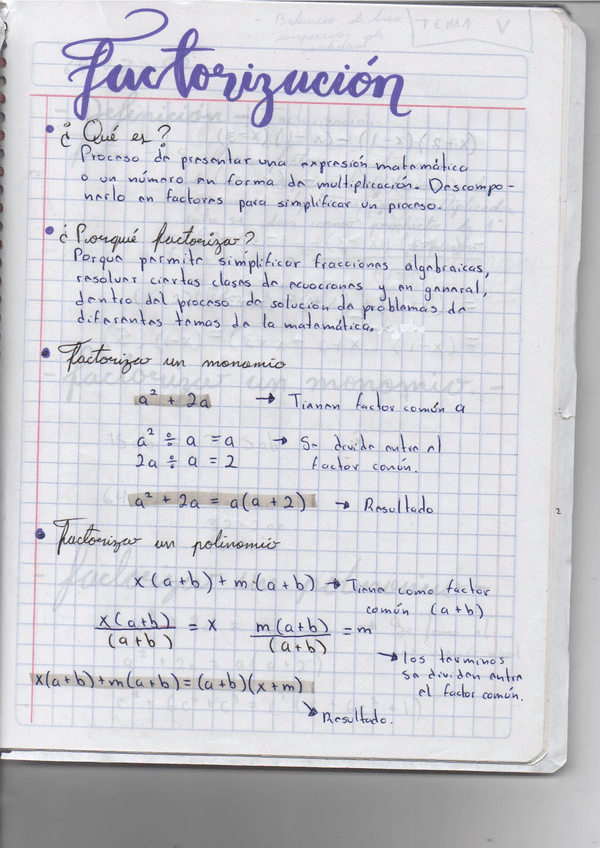 Factorización
¿Qué es?
Proceso de presentar una expresión matemática
o un número en forma de multiplicación. Descompo-
nerlo en factores para simplificar un proceso.
¿Porqué factorizar?
Porque permite simplificar fracciones algebraicas,
resolver ciertas clases de ecuaciones y en general,
dentro del proceso de solución de problemas de
diferentes temas de la matemática.
Factorizar un monomio
a² + 2a → Tienen factor común a
a² ÷ a = a → Se divide entre el
2a ÷ a = 2 factor común.
a² + 2a = a(a + 2) → Resultado
Factorizar un polinomio
x(a+b) + m(a+b) → Tiene como factor
común (a+b)
x(a+b)/(a+b) = x m(a+b)/(a+b) = m
→ los terminos
se dividen entre
el factor común.
x(a+b)+m(a+b) = (a+b)(x+m)
↘ Resultado.
TEMA V
2